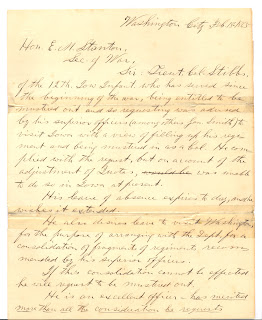 Washington City Feb
Hon. E. M. Stanton,
Sec of War,
Sir, Lieut. Col Stibbs,
of the 12th Iowa Infant. who has served since
the beginning of the war, being entitled to be
mustered out and so requesting was advised
by his superior officers (among others Gen Smith) to
visit Iowa with a view of filling up his regi
ment and being mustered in as Col. He com
plied with the request, but on account of the
adjustment of Quotas, was unable
to do so in Iowa at present.
His leave of absence expires to day, and he
wishes it extended.
He also desires leave to visit Washington
for the purpose of arranging with the Dept. for a
consolidation of fragments of regiments, recom
mended by his superior officers.
If this consolidation cannot be effected
he will request to be mustered out.
He is an excellent officer & has merited
more than all the consideration he requests